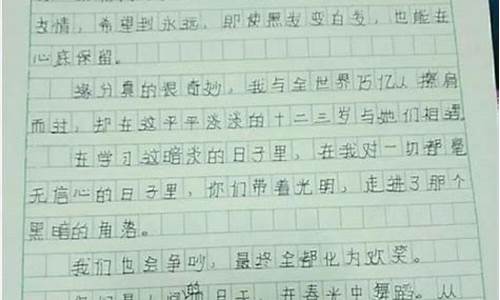 友情，希望到永远，即使黑发变白发，也能在
心底保留。
缘分真的很奇妙，我与全世界75亿人擦肩
而过，却在这平平淡淡的十二三岁与她们相遇
在学习这暗淡的日子里，在我对一切都毫
无信心的日子里，你们带着光明，走进了那个
黑暗的角落。
我们也会争吵，最终全都化为欢笑。
天，在春光中舞蹈。从